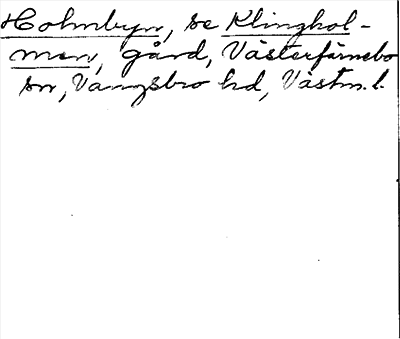 Holmbyn, se Klinghol-
men, gård, Västerfärnebo
sn, Vangsbro hd, Västm. l.